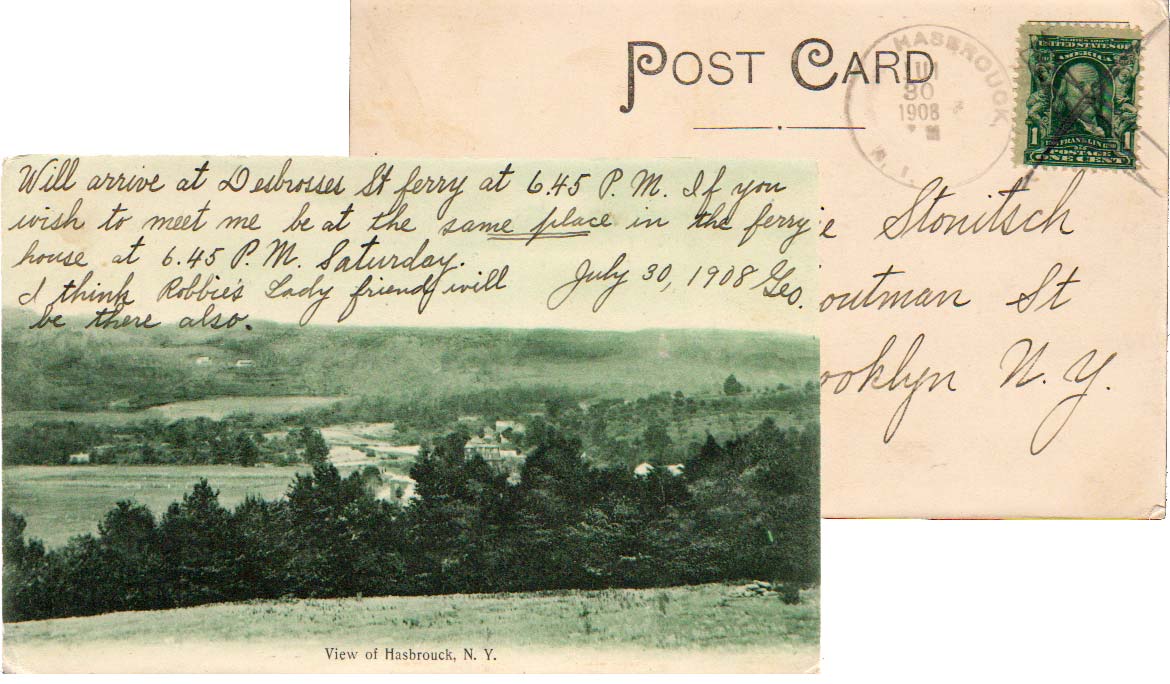 POST CARD
HASBROUCK,
30
1908
N.
SERIES 1902
UNITED STATES OF
AMERICA
1 FRANKLIN 1
POSTAGE
ONE CENT
Will arrive at Desbrosses St ferry at 6.45 P. M. If you
wish to meet me be at the same place in the ferry
house at 6.45 P. M. Saturday.
I think Robbie's Lady friend will
be there also.
July 30, 1908 Geo.
e Stonitsch
outman St
ooklyn N. Y.
View of Hasbrouck, N. Y.